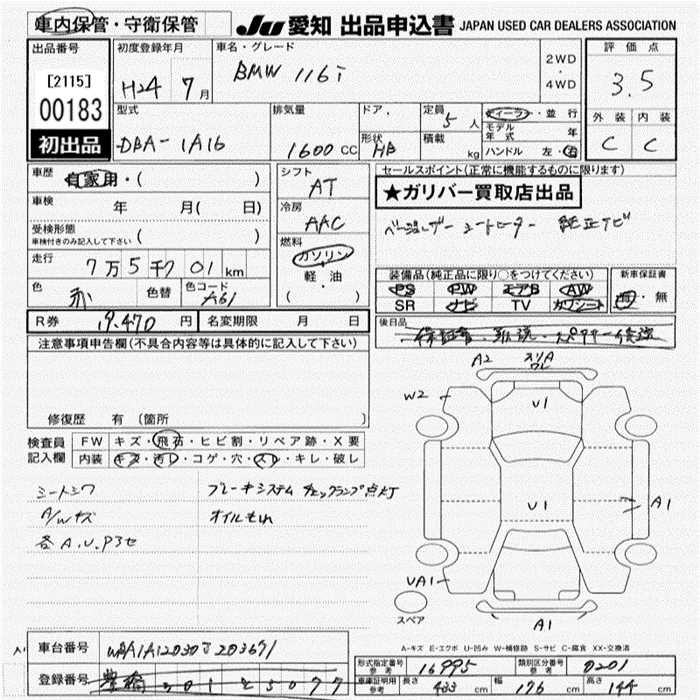 車内保管・守衛保管 JU 愛知 出品申込書 JAPAN USED CAR DEALERS ASSOCIATION
出品番号 初度登録年月 車名・グレード 評価点
[2115] H24 7月 BMW 116i 2WD・4WD 3.5
00183 型式 排気量 ドア 定員 5人 ディーラー・並行 外装 内装
初出品 DBA-1A16 1600cc 形状 HB 積載 kg モデル年式 年 ハンドル 左・右 C C
車歴 自家用・( ) シフト AT セールスポイント(正常に機能するものに限ります)
★ガリバー買取店出品
車検 年 月( 日) 冷房 AAC
受検形態 車検付きのみ記入して下さい ( ) 燃料 ガソリン・軽油 ( )
走行 7万5千701km 装備品(純正品に限り○をつけてください) 新車保証書
色 赤 色替 色コード A61 PS PW エアB AW 有・無
SR ナビ TV カワシート
R券 9.470円 名変期限 月 日 後日品
注意事項申告欄(不具合内容等は具体的に記入して下さい)
A2 スリA ワレ
W2 U1
修復歴 有 (箇所 )
検査員記入欄 FW キズ・飛石・ヒビ割・リペア跡・X要
内装 キズ・汚レ・コゲ・穴・スレ・キレ・破レ
シートシワ ブレーキシステム チェックランプ点灯
A/Wキズ オイルモレ U1 A1
各A.U.Pヨセ
UA1
スペア A1
A-キズ E-エクボ U-凹み W-補修跡 S-サビ C-腐食 XX-交換済
車台番号 形式指定番号 参考 16995 類別区分番号 参考 0201
登録番号 豊橋 301 車庫証明用 参考 長さ 433cm 幅 176cm 高さ 144cm